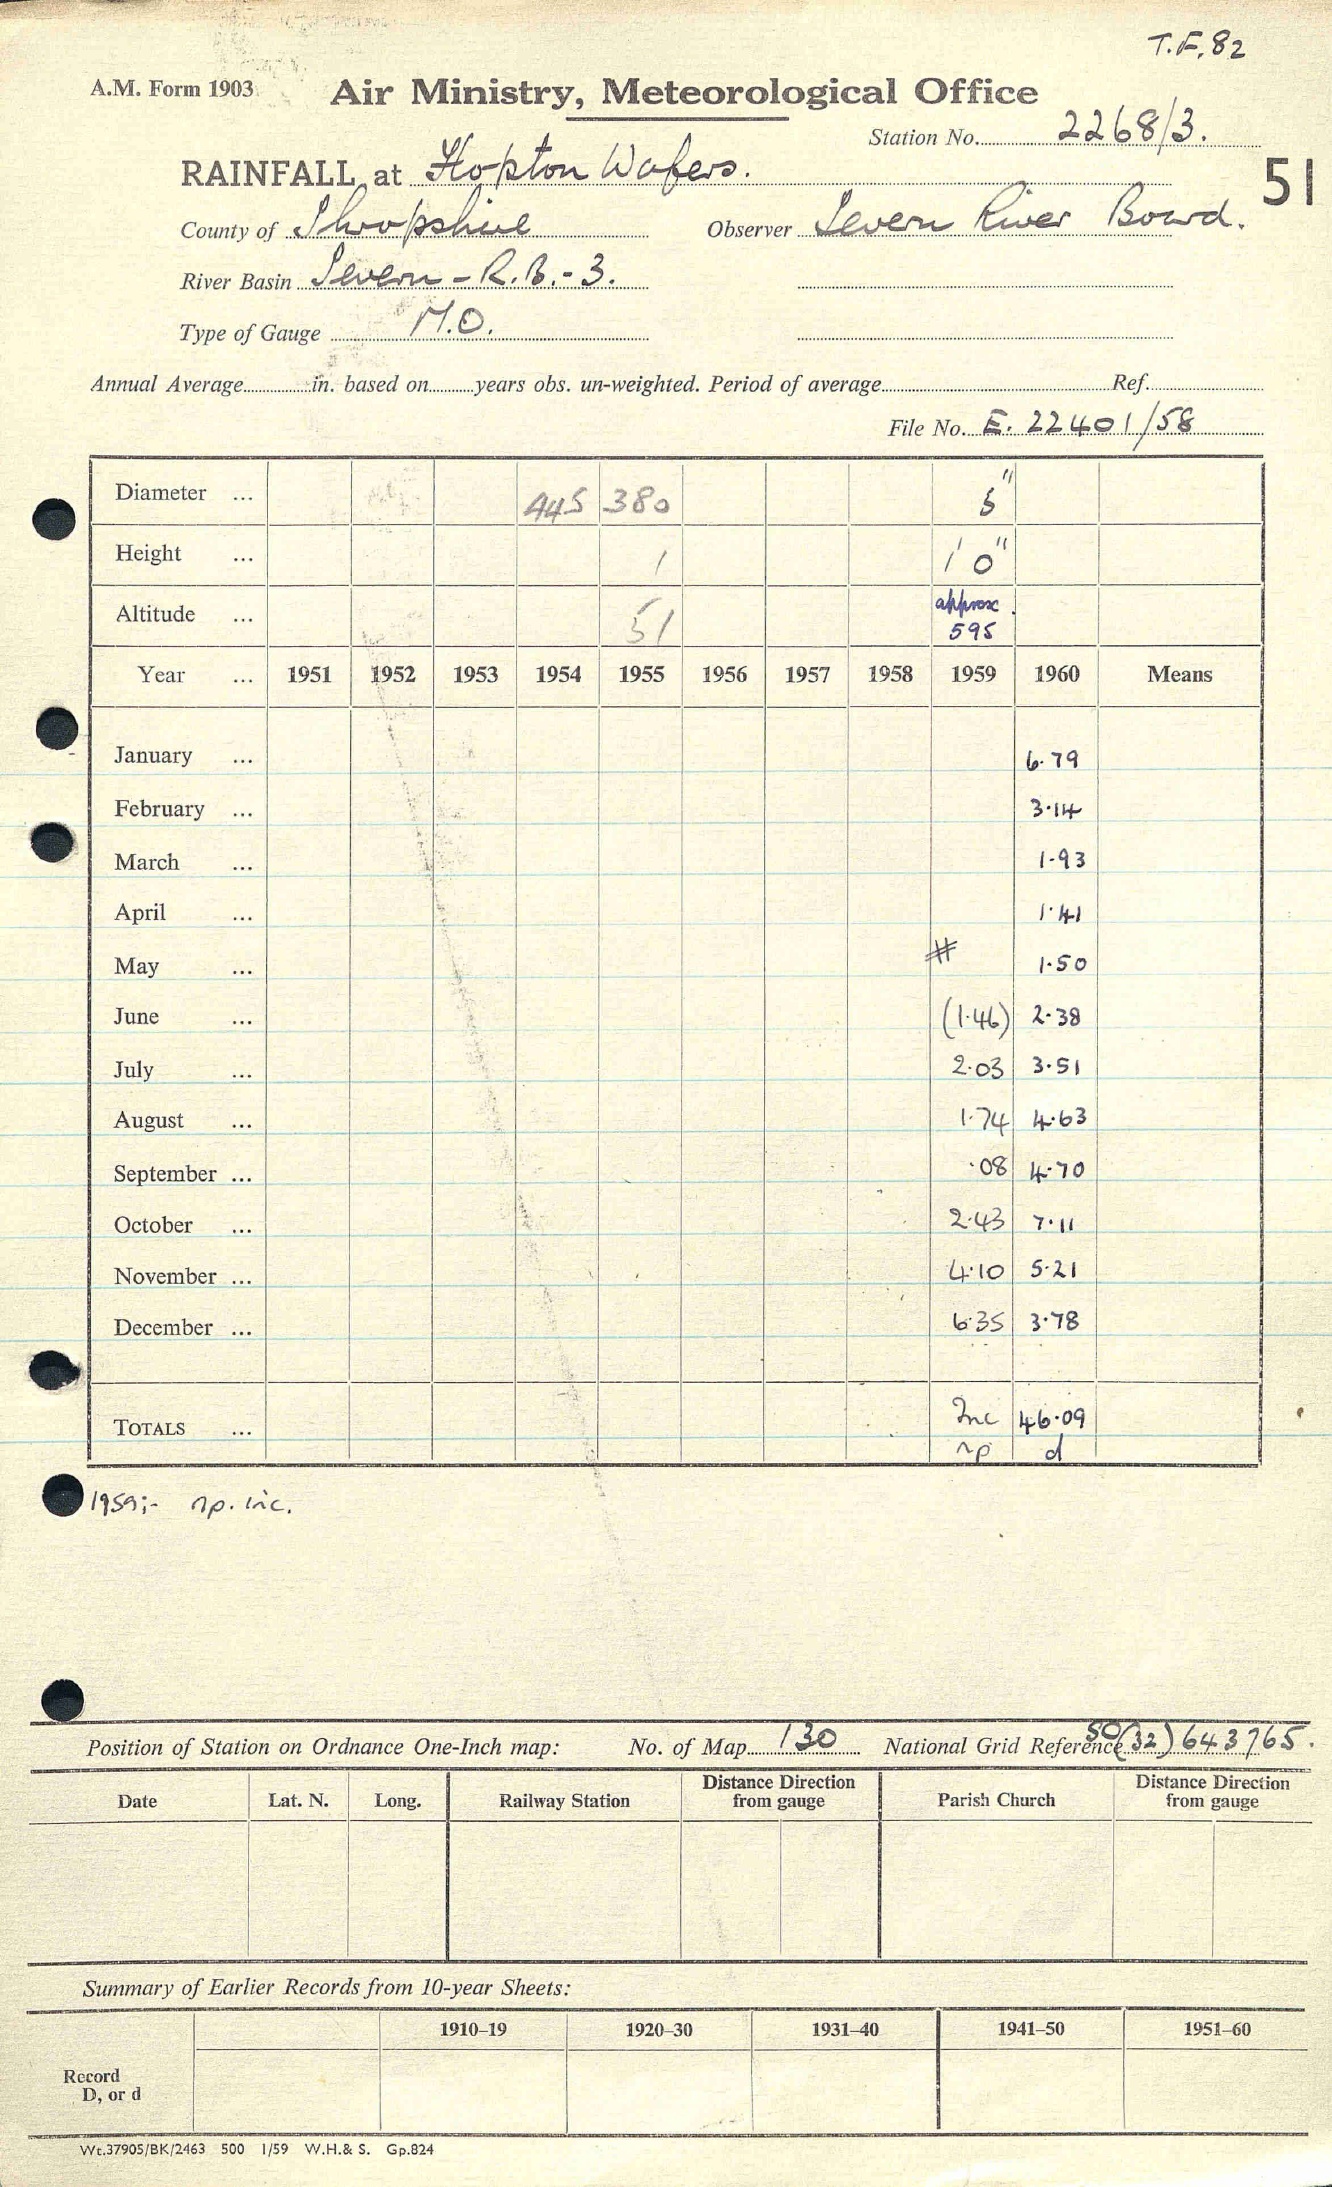 T.F. 82
A.M. Form 1903 Air Ministry, Meteorological Office
Station No. 2268/3.
RAINFALL at Hopton Wafers. 51
County of Shropshire Observer Severn River Board.
River Basin Severn - R.B. - 3.
Type of Gauge M.O.
Annual Average in. based on years obs. un-weighted. Period of average Ref.
File No. E. 22401/58
Diameter ... 445 380 5"
Height ... 1 1' 0"
Altitude ... 51 approx. 595
Year ... 1951 1952 1953 1954 1955 1956 1957 1958 1959 1960 Means
January ... 6.79
February ... 3.14
March ... 1.93
April ... 1.41
May ... # 1.50
June ... (1.46) 2.38
July ... 2.03 3.51
August ... 1.74 4.63
September ... .08 4.70
October ... 2.43 7.11
November ... 4.10 5.21
December ... 6.35 3.78
TOTALS ... Inc 46.09
np d
1959;- np. inc.
Position of Station on Ordnance One-Inch map: No. of Map 130 National Grid Reference 50(32)643765.
Date Lat. N. Long. Railway Station Distance Direction from gauge Parish Church Distance Direction from gauge
Summary of Earlier Records from 10-year Sheets:
1910–19 1920–30 1931–40 1941–50 1951–60
Record
D, or d
Wt.37905/BK/2463 500 1/59 W.H.& S. Gp.824